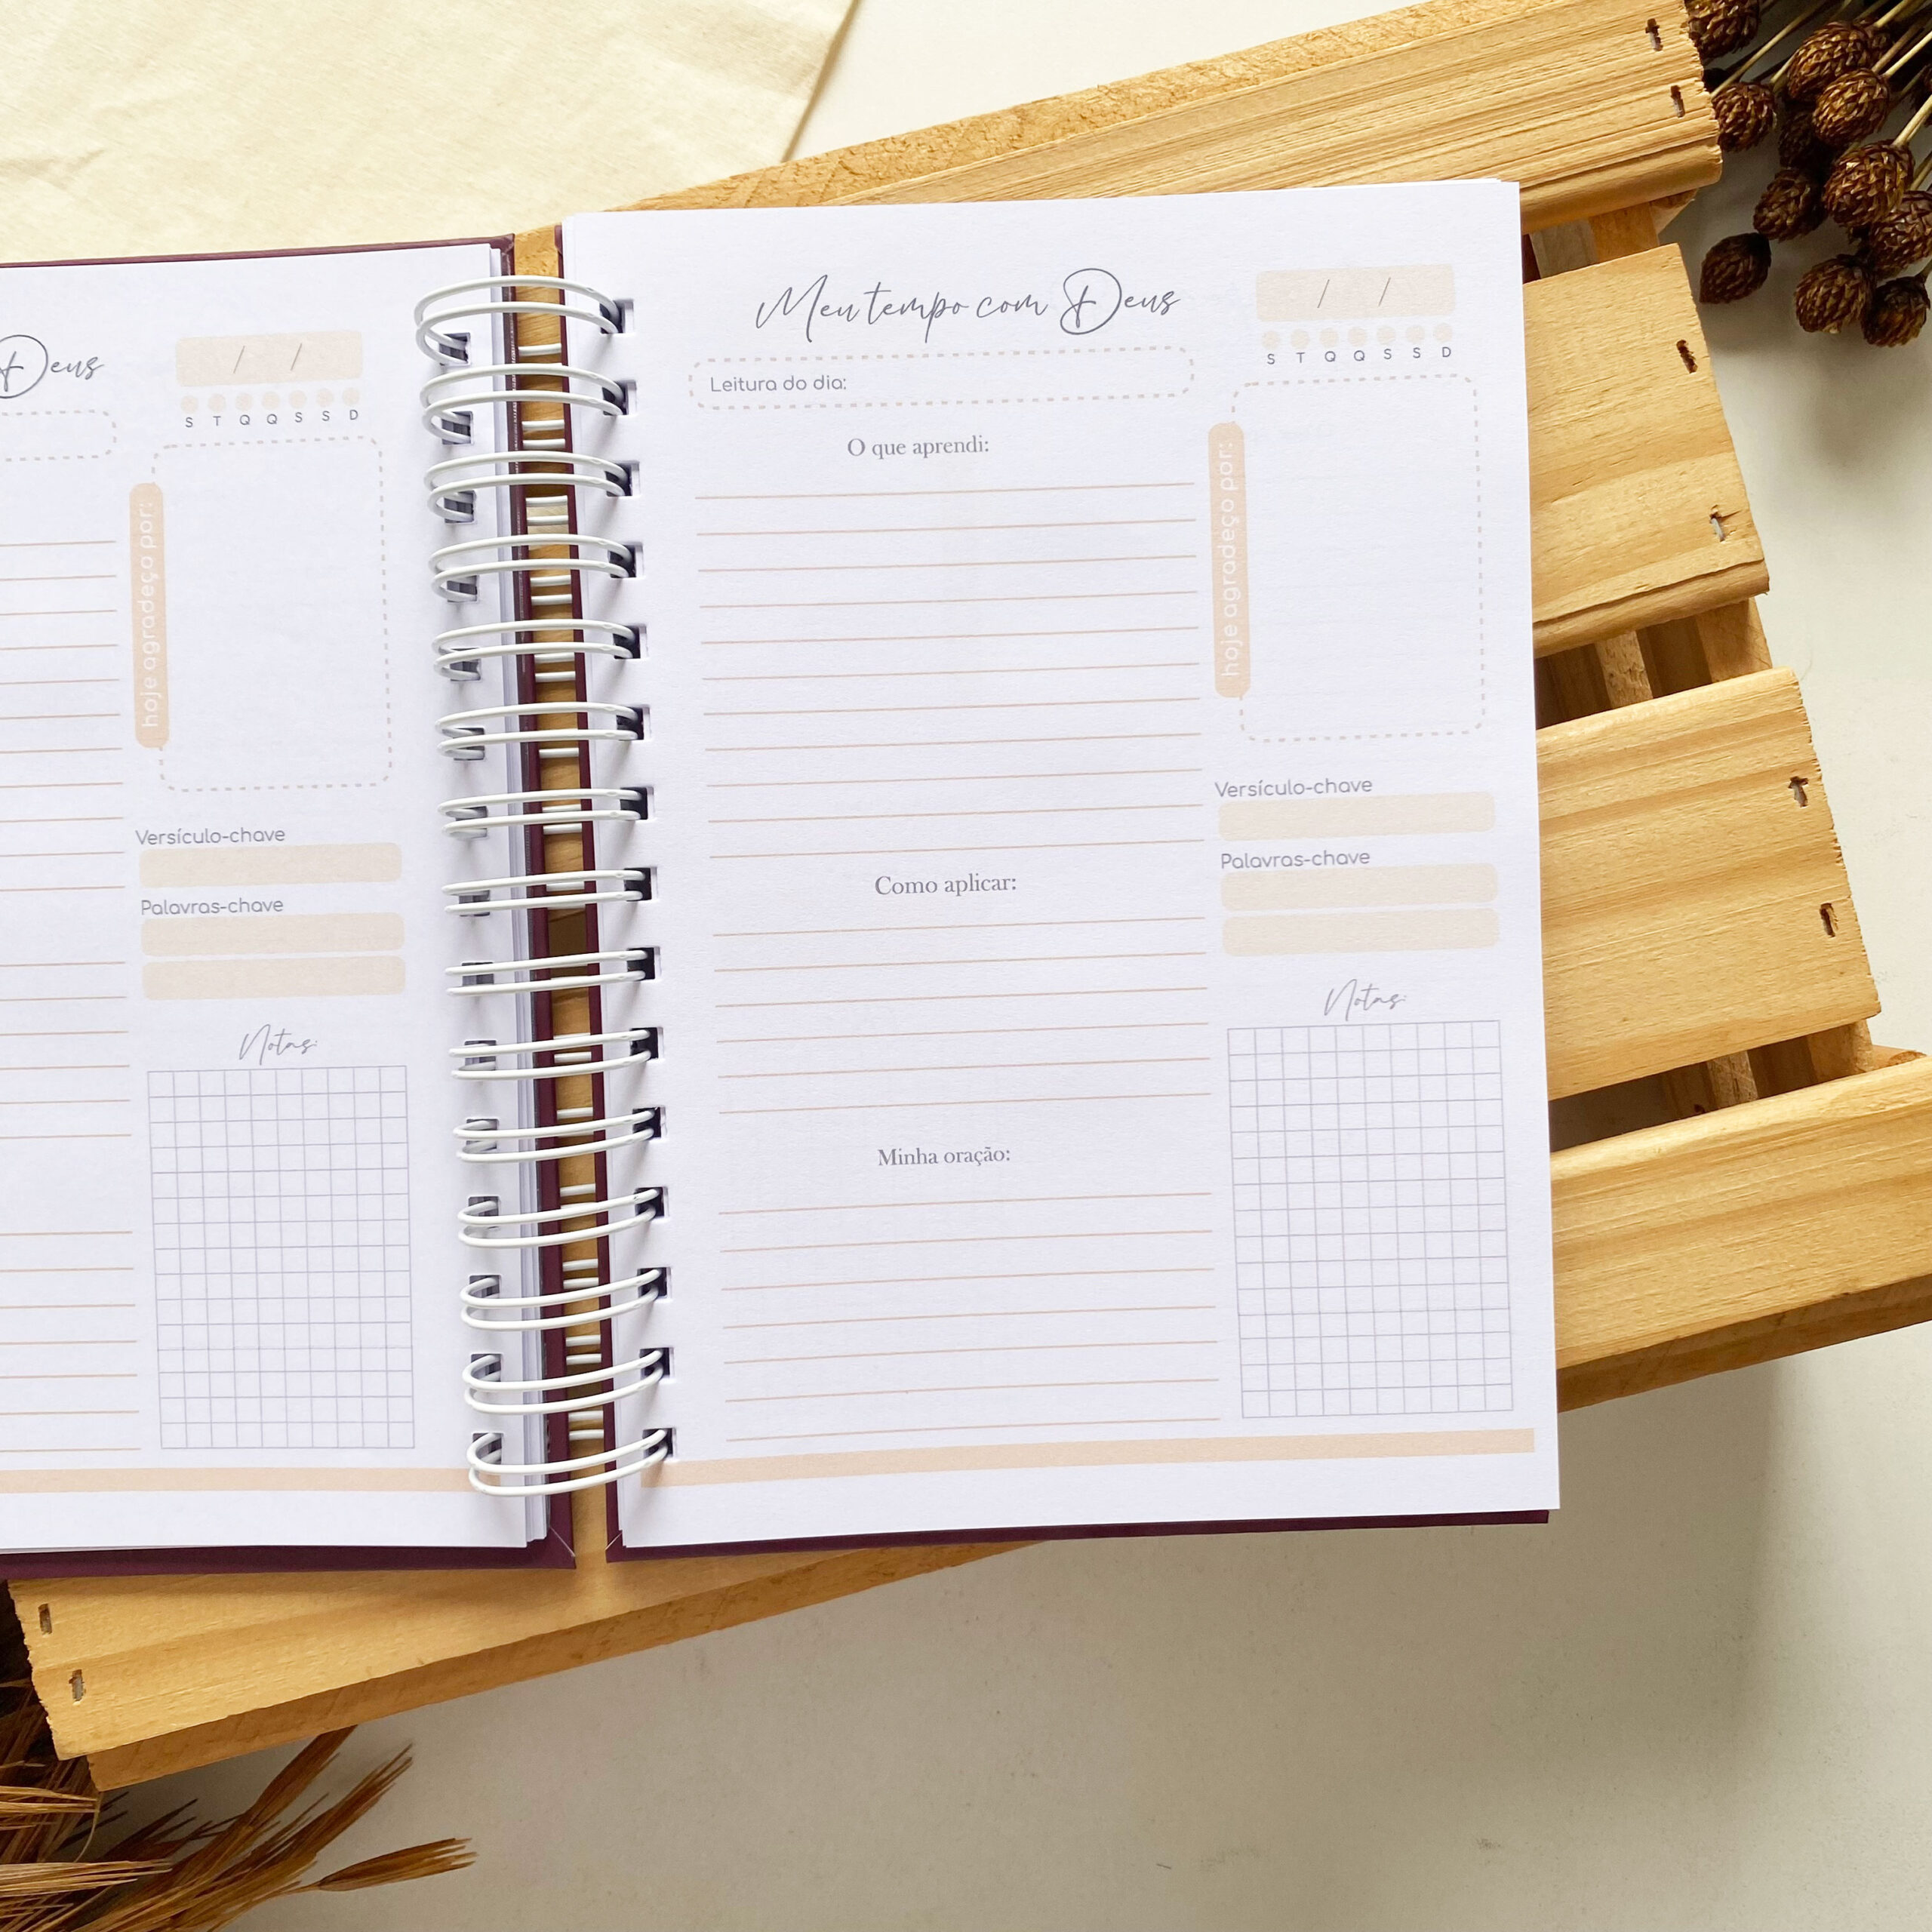 Deus
/ /
S T Q Q S S D
hoje agradeço por:
Versículo-chave
Palavras-chave
Notas:
Meu tempo com Deus
/ /
S T Q Q S S D
Leitura do dia:
O que aprendi:
hoje agradeço por:
Versículo-chave
Palavras-chave
Como aplicar:
Notas:
Minha oração: